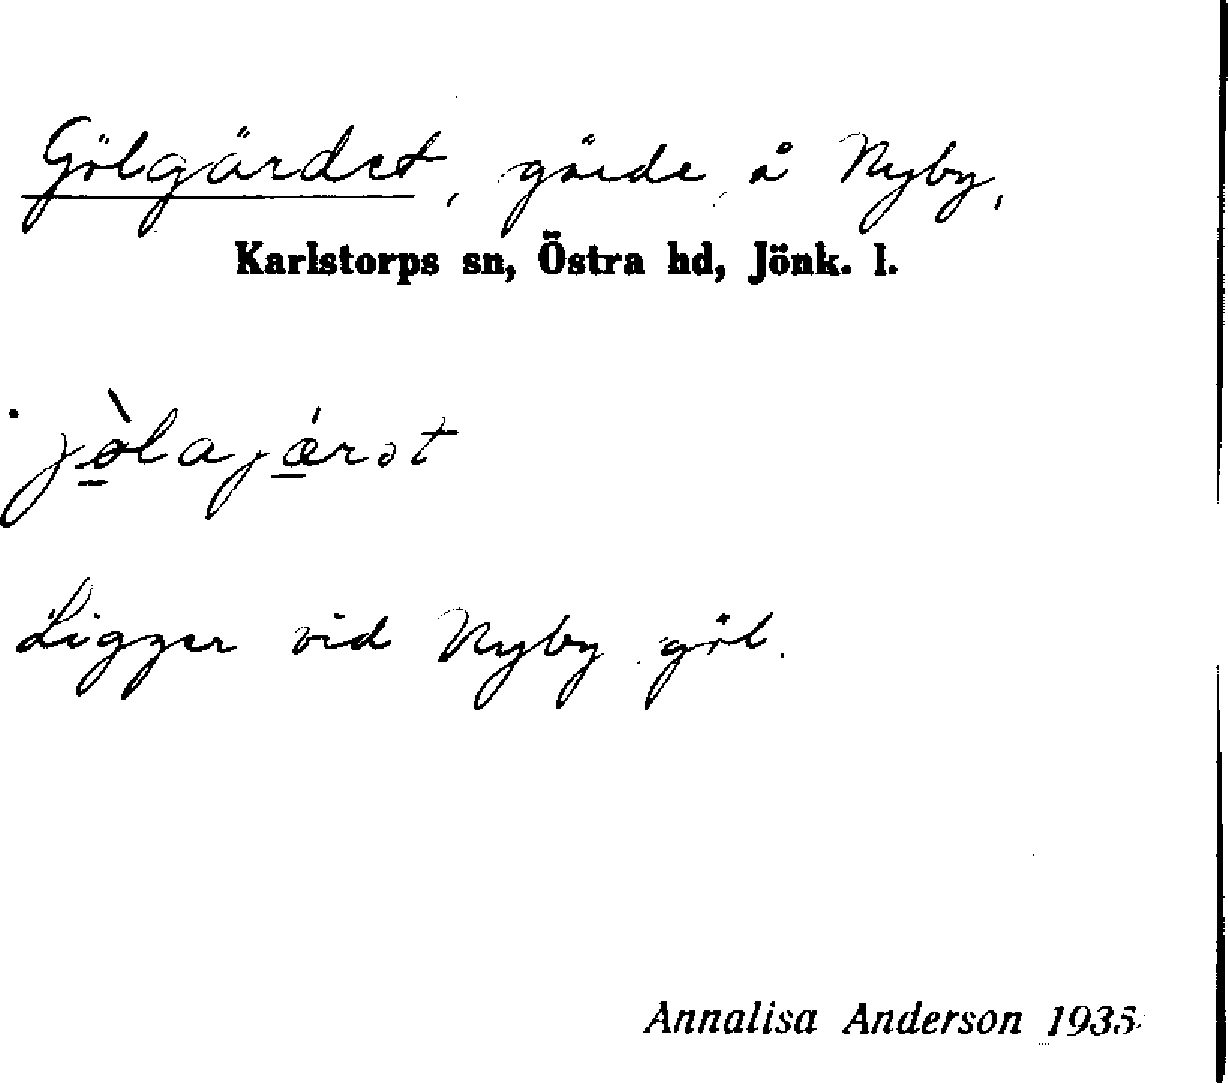 Gölgärdet, gärde å Nyby,
Karlstorps sn, Östra hd, Jönk. l.
jø̀lajǽrət
Ligger vid Nyby göl.
Annalisa Anderson 1935